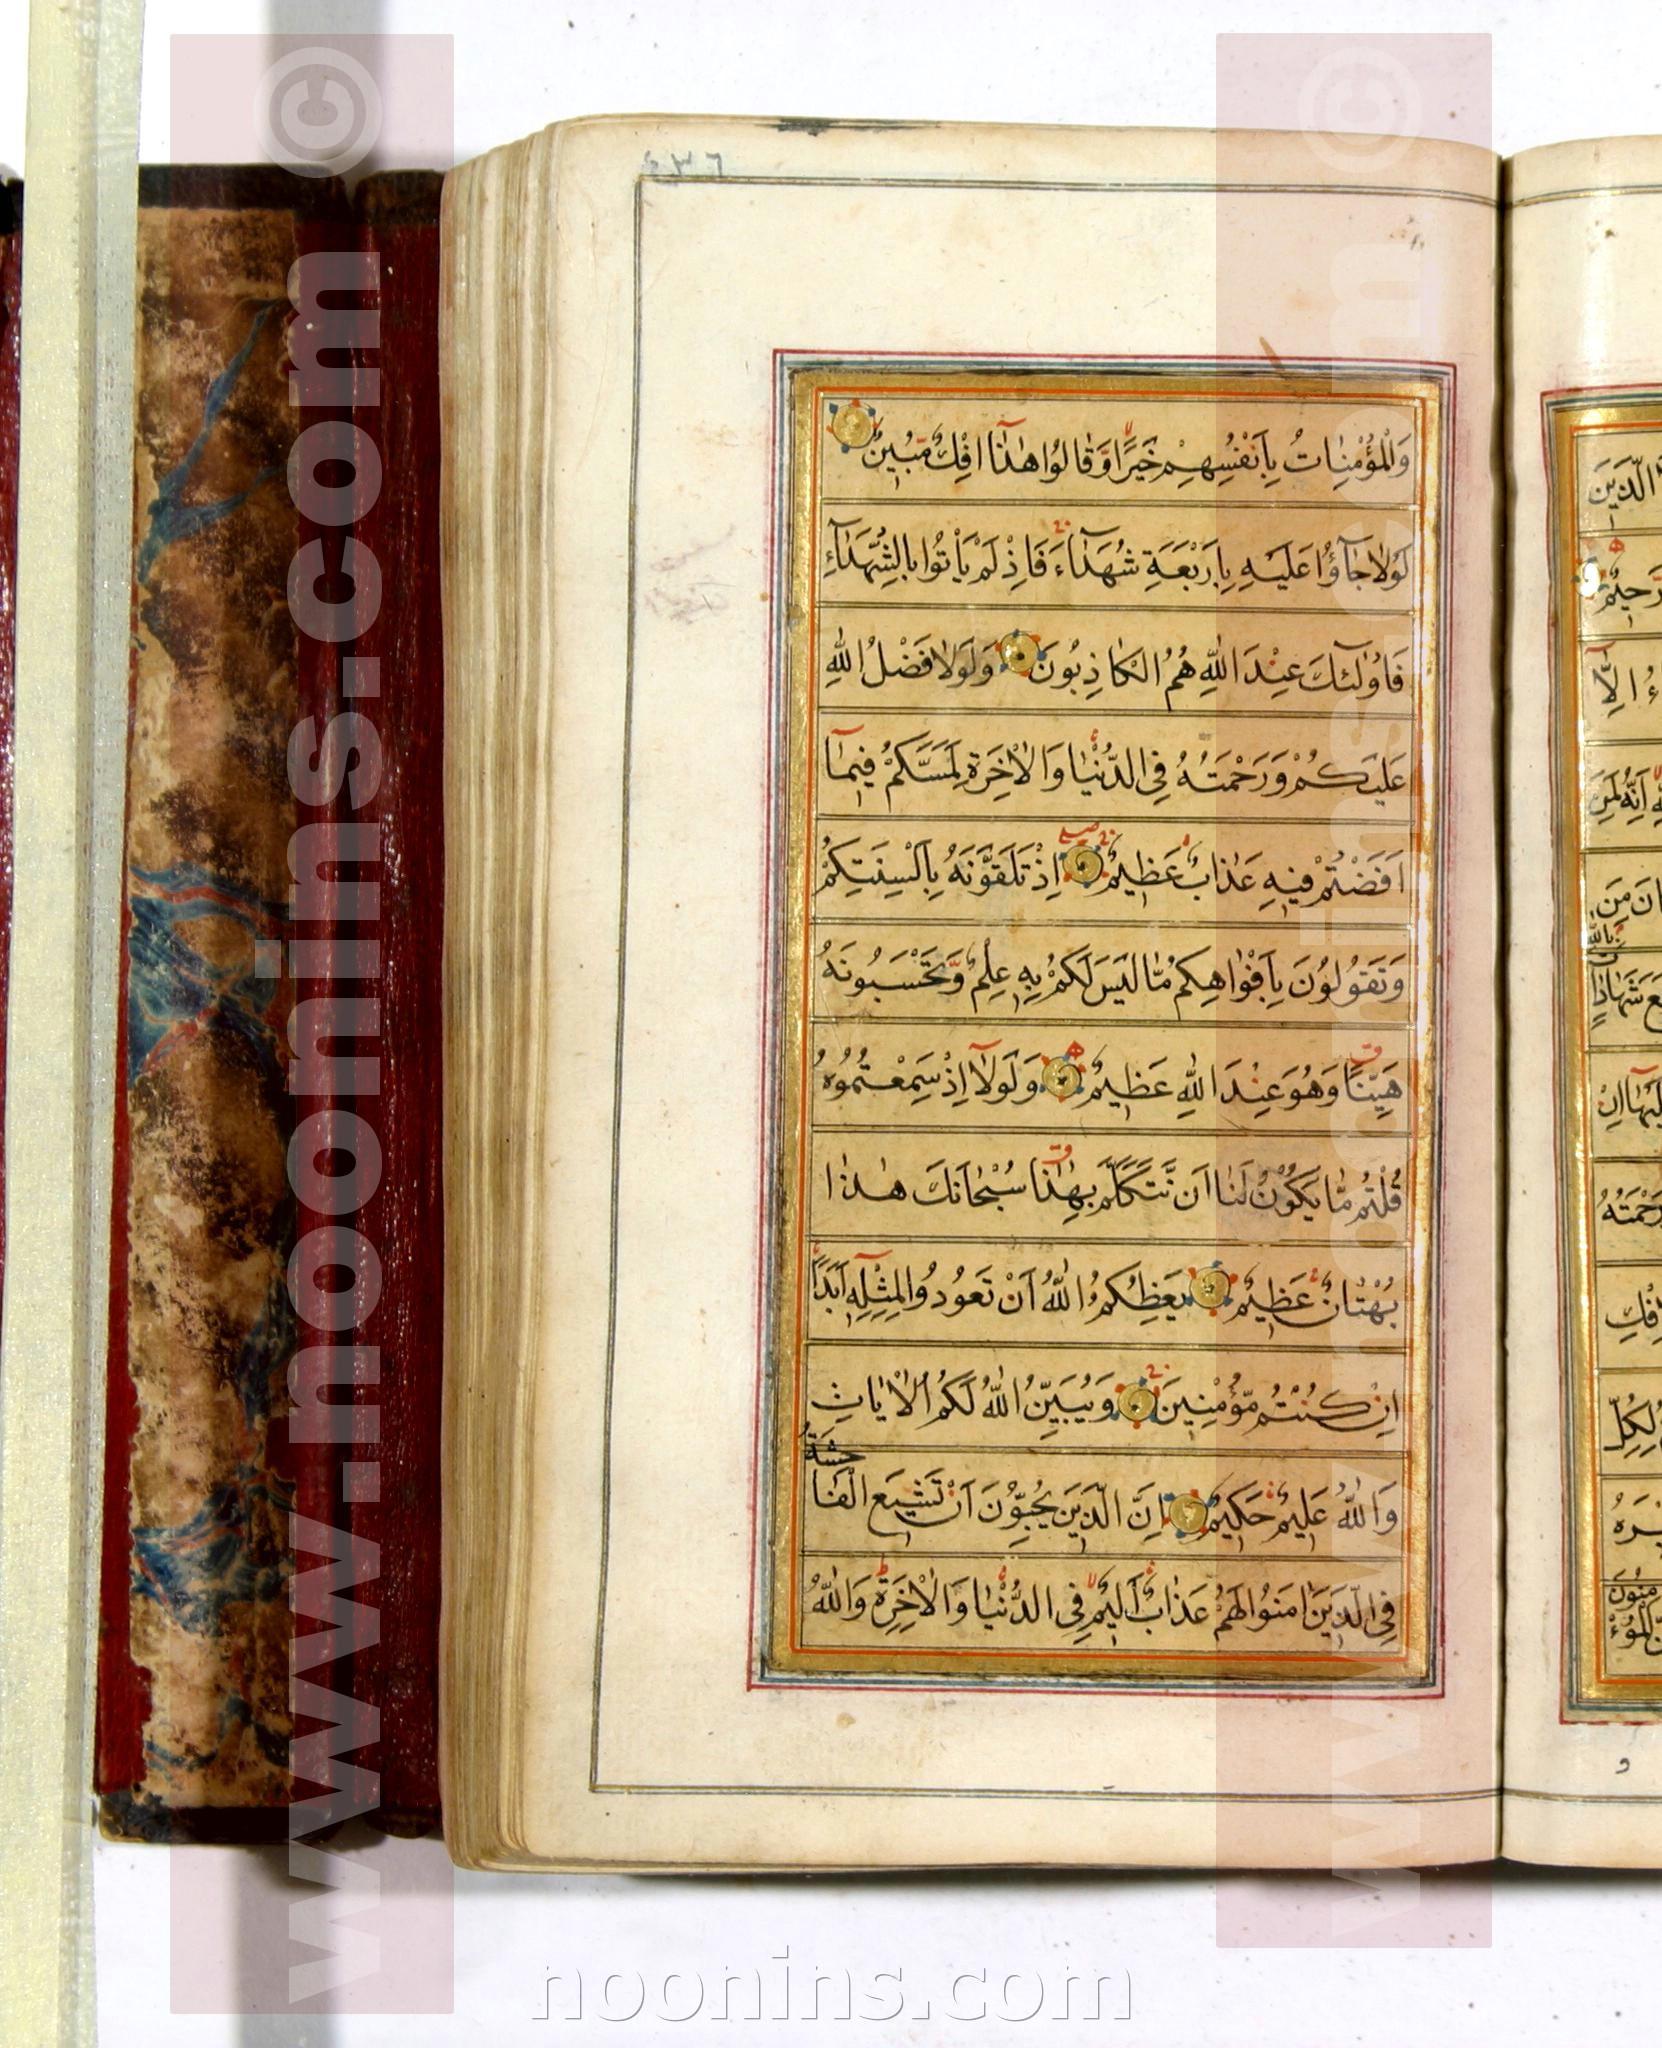 ٤٣٦
وَالْمُؤْمِنَاتُ بِاَنْفُسِهِمْ خَيْرًا وَّقَالُوا هٰذَا اِفْكٌ مُّبِينٌ
لَوْلَا جَآؤُا عَلَيْهِ بِاَرْبَعَةِ شُهَدَآءَ فَاِذْ لَمْ يَاْتُوا بِالشُّهَدَآءِ
فَاُولٰٓئِكَ عِنْدَ اللّٰهِ هُمُ الْكَاذِبُونَ وَلَوْلَا فَضْلُ اللّٰهِ
عَلَيْكُمْ وَرَحْمَتُهُ فِي الدُّنْيَا وَالْاٰخِرَةِ لَمَسَّكُمْ فِيمَآ
اَفَضْتُمْ فِيهِ عَذَابٌ عَظِيمٌ اِذْ تَلَقَّوْنَهُ بِاَلْسِنَتِكُمْ
وَتَقُولُونَ بِاَفْوَاهِكُمْ مَّا لَيْسَ لَكُمْ بِهِ عِلْمٌ وَّتَحْسَبُونَهُ
هَيِّنًا وَهُوَ عِنْدَ اللّٰهِ عَظِيمٌ وَلَوْلَآ اِذْ سَمِعْتُمُوهُ
قُلْتُمْ مَّا يَكُوْنُ لَنَا اَنْ نَّتَكَلَّمَ بِهٰذَا سُبْحَانَكَ هٰذَا
بُهْتَانٌ عَظِيمٌ يَعِظُكُمُ اللّٰهُ اَنْ تَعُودُوا لِمِثْلِهِ اَبَدًا
اِنْ كُنْتُمْ مُّؤْمِنِينَ وَيُبَيِّنُ اللّٰهُ لَكُمُ الْاٰيَاتِ
وَاللّٰهُ عَلِيمٌ حَكِيمٌ اِنَّ الَّذِينَ يُحِبُّوْنَ اَنْ تَشِيعَ الْفَا
حِشَةُ
فِي الَّذِينَ اٰمَنُوا لَهُمْ عَذَابٌ اَلِيمٌ فِي الدُّنْيَا وَالْاٰخِرَةِ وَاللّٰهُ
www.noonins.com ©
www.noonins.com ©
noonins.com